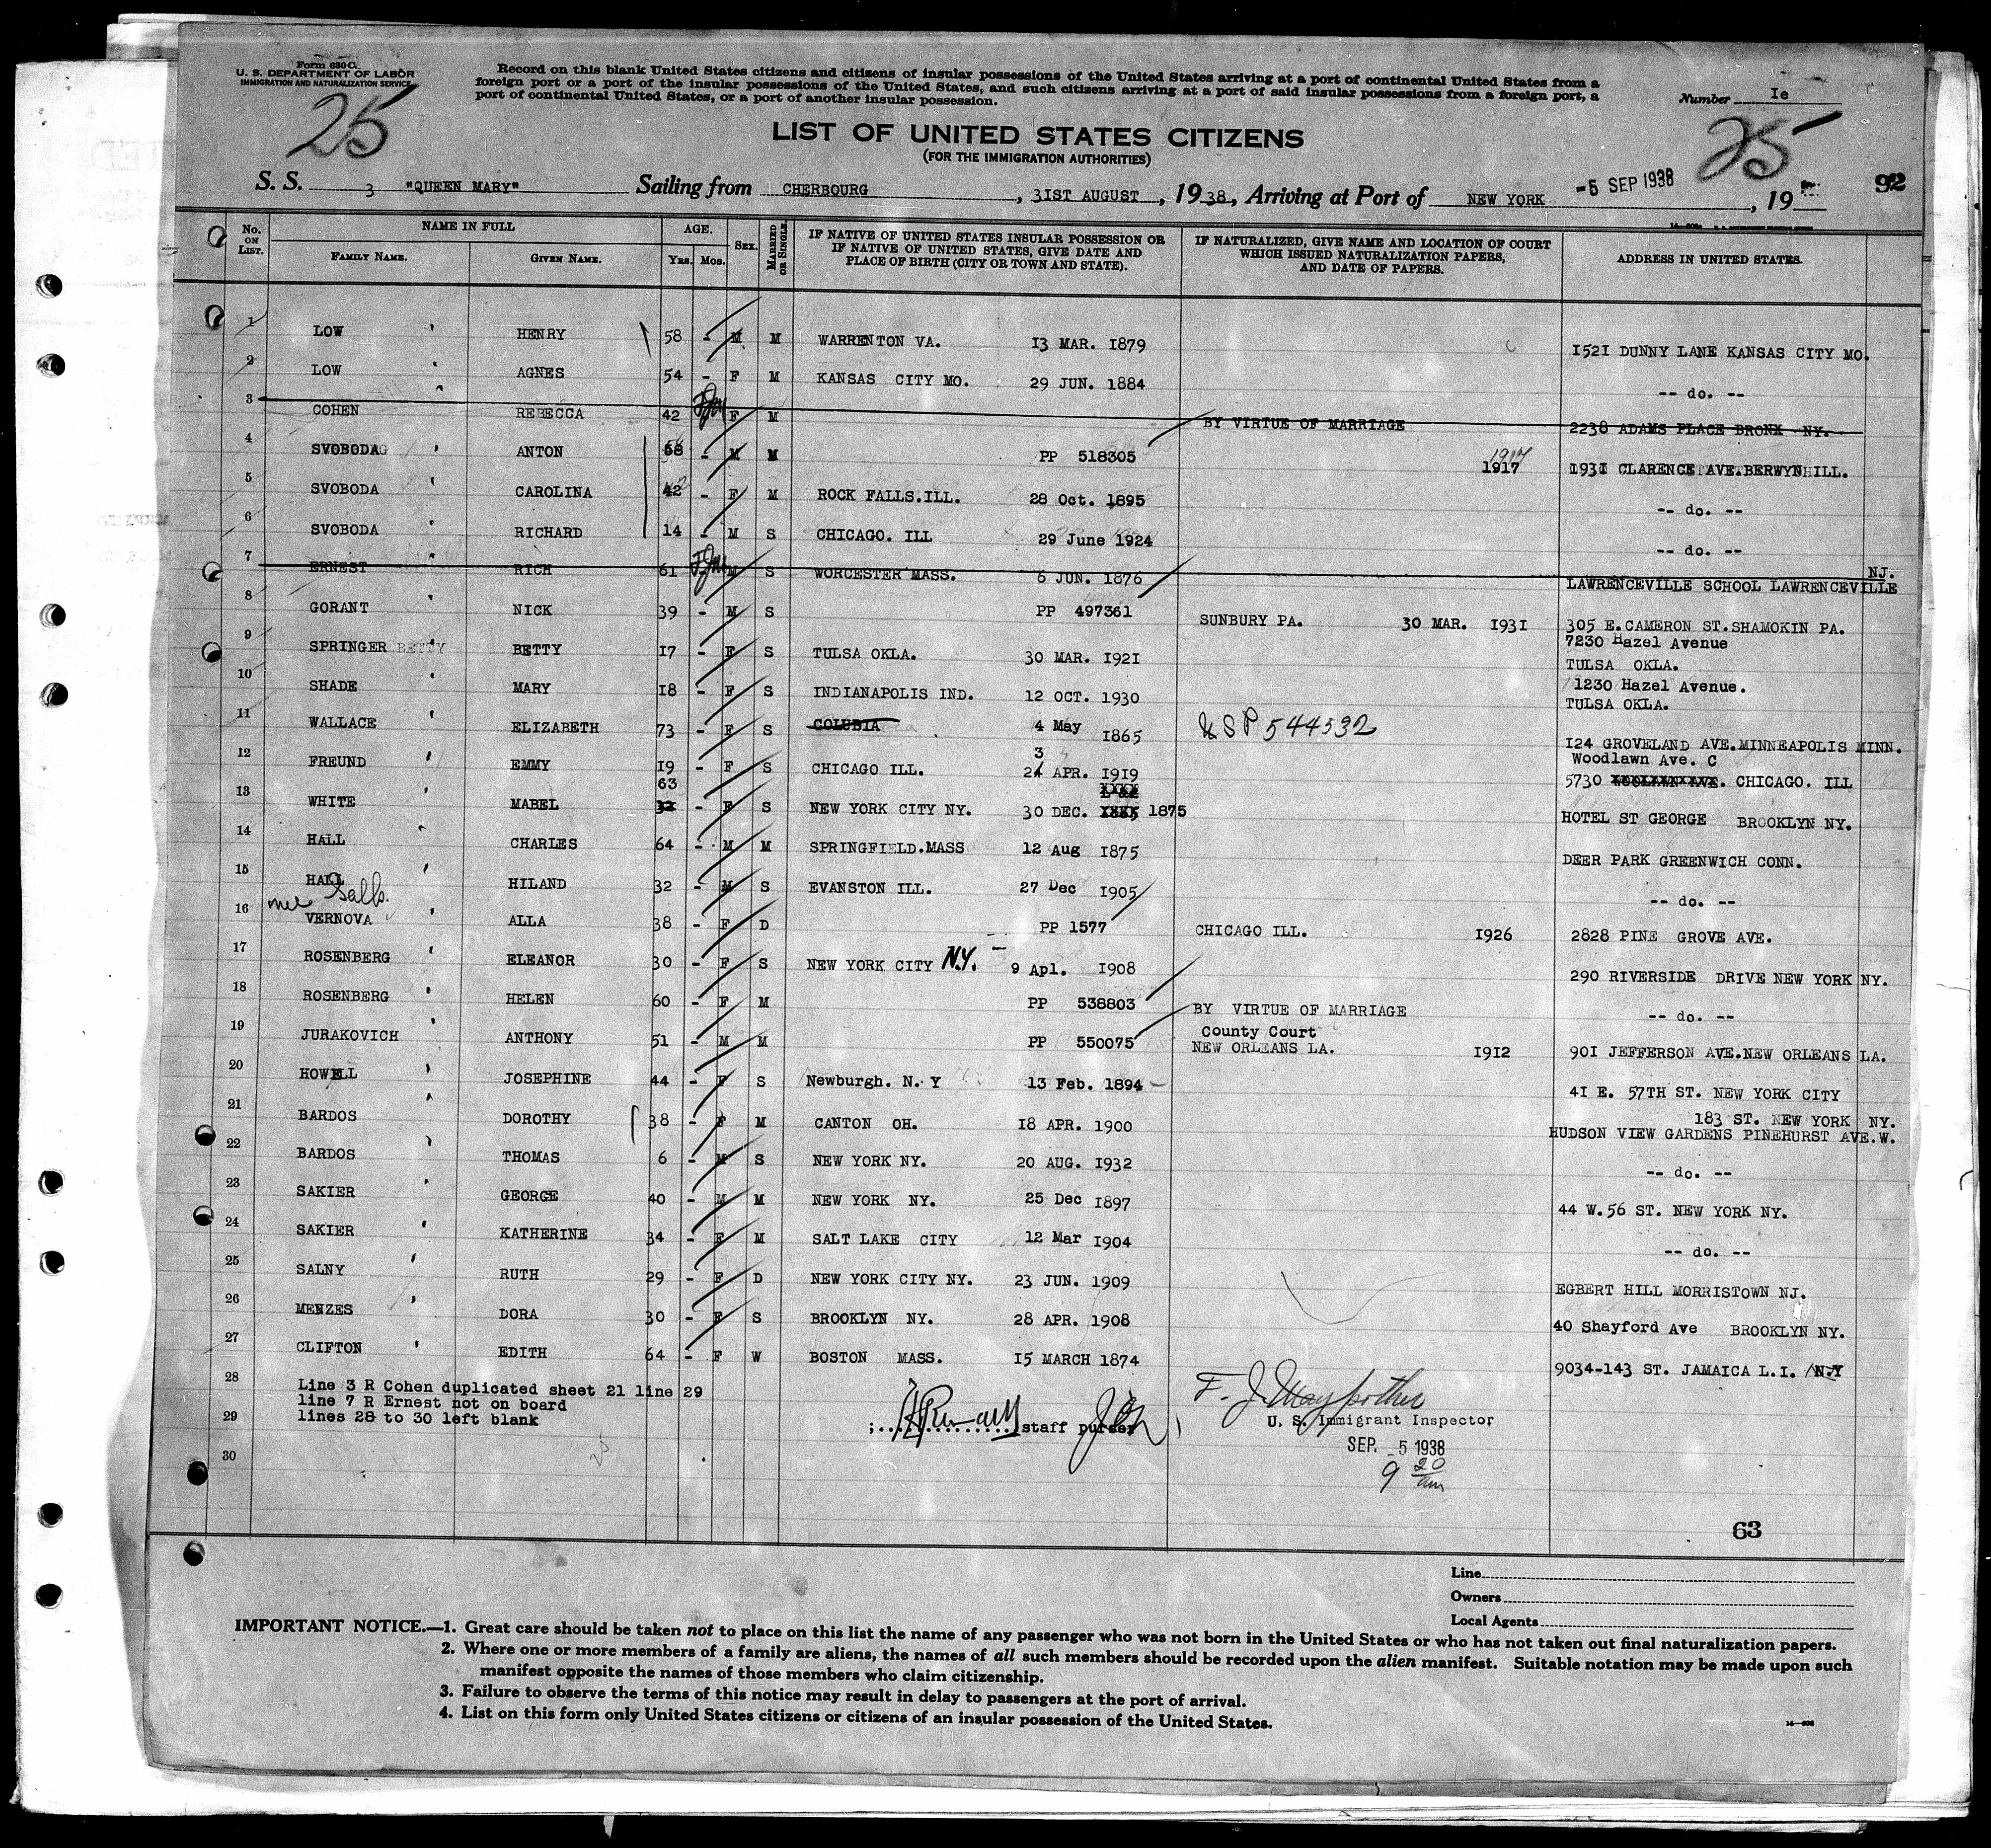 Form 630 C.
U. S. DEPARTMENT OF LABOR
IMMIGRATION AND NATURALIZATION SERVICE
25
Record on this blank United States citizens and citizens of insular possessions of the United States arriving at a port of continental United States from a
foreign port or a port of the insular possessions of the United States, and such citizens arriving at a port of said insular possessions from a foreign port, a
port of continental United States, or a port of another insular possession.
Number Ie
25
LIST OF UNITED STATES CITIZENS
(FOR THE IMMIGRATION AUTHORITIES)
S. S. 3 "QUEEN MARY" Sailing from CHERBOURG, 31ST AUGUST, 1938, Arriving at Port of NEW YORK -5 SEP 1938, 19
92
No. ON LIST. NAME IN FULL FAMILY NAME. GIVEN NAME. AGE. Yrs. Mos. SEX. MARRIED OR SINGLE IF NATIVE OF UNITED STATES INSULAR POSSESSION OR IF NATIVE OF UNITED STATES, GIVE DATE AND PLACE OF BIRTH (CITY OR TOWN AND STATE). IF NATURALIZED, GIVE NAME AND LOCATION OF COURT WHICH ISSUED NATURALIZATION PAPERS, AND DATE OF PAPERS. ADDRESS IN UNITED STATES.
1 LOW HENRY 58 - M M WARRENTON VA. 13 MAR. 1879 1521 DUNNY LANE KANSAS CITY MO.
2 LOW AGNES 54 - F M KANSAS CITY MO. 29 JUN. 1884 -- do. --
3 COHEN REBECCA 42 F M BY VIRTUE OF MARRIAGE 2238 ADAMS PLACE BRONX NY.
4 SVOBODA ANTON 58 - M M PP 518305 1917 1917 1931 CLARENCE AVE.BERWYN ILL.
5 SVOBODA CAROLINA 42 - F M ROCK FALLS.ILL. 28 Oct. 1895 -- do. --
6 SVOBODA RICHARD 14 - M S CHICAGO. ILL 29 June 1924 -- do. --
7 ERNEST RICH 61 M S WORCESTER MASS. 6 JUN. 1876 LAWRENCEVILLE SCHOOL LAWRENCEVILLE NJ.
8 GORANT NICK 39 - M S PP 497361 SUNBURY PA. 30 MAR. 1931 305 E.CAMERON ST.SHAMOKIN PA.
9 SPRINGER BETTY BETTY 17 - F S TULSA OKLA. 30 MAR. 1921 7230 Hazel Avenue TULSA OKLA.
10 SHADE MARY 18 - F S INDIANAPOLIS IND. 12 OCT. 1930 1230 Hazel Avenue. TULSA OKLA.
11 WALLACE ELIZABETH 73 - F S COLUBIA 4 May 1865 USP 544532 124 GROVELAND AVE.MINNEAPOLIS MINN.
12 FREUND EMMY 19 - F S CHICAGO ILL. 3 24 APR. 1919 Woodlawn Ave. C 5730 CHICAGO. ILL
13 WHITE MABEL 63 32 - F S NEW YORK CITY NY. 30 DEC. 1875 HOTEL ST GEORGE BROOKLYN NY.
14 HALL CHARLES 64 - M M SPRINGFIELD.MASS 12 Aug 1875 DEER PARK GREENWICH CONN.
15 HALL HILAND 32 - M S EVANSTON ILL. 27 Dec 1905 -- do. --
16 VERNOVA ALLA 38 - F D PP 1577 CHICAGO ILL. 1926 2828 PINE GROVE AVE.
17 ROSENBERG ELEANOR 30 - F S NEW YORK CITY N.Y. 9 Apl. 1908 290 RIVERSIDE DRIVE NEW YORK NY.
18 ROSENBERG HELEN 60 - F M PP 538803 BY VIRTUE OF MARRIAGE -- do. --
19 JURAKOVICH ANTHONY 51 - M M PP 550075 County Court NEW ORLEANS LA. 1912 901 JEFFERSON AVE.NEW ORLEANS LA.
20 HOWELL JOSEPHINE 44 - F S Newburgh. N. Y 13 Feb. 1894 41 E. 57TH ST. NEW YORK CITY
21 BARDOS DOROTHY 38 - F M CANTON OH. 18 APR. 1900 183 ST. NEW YORK NY. HUDSON VIEW GARDENS PINEHURST AVE.W.
22 BARDOS THOMAS 6 - M S NEW YORK NY. 20 AUG. 1932 -- do. --
23 SAKIER GEORGE 40 - M M NEW YORK NY. 25 Dec 1897 44 W.56 ST. NEW YORK NY.
24 SAKIER KATHERINE 34 - F M SALT LAKE CITY 12 Mar 1904 -- do. --
25 SALNY RUTH 29 - F D NEW YORK CITY NY. 23 JUN. 1909 EGBERT HILL MORRISTOWN NJ.
26 MENZES DORA 30 - F S BROOKLYN NY. 28 APR. 1908 40 Shayford Ave BROOKLYN NY.
27 CLIFTON EDITH 64 - F W BOSTON MASS. 15 MARCH 1874 9034-143 ST. JAMAICA L.I. N.Y
28 Line 3 R Cohen duplicated sheet 21 line 29
line 7 R Ernest not on board
29 lines 28 to 30 left blank
staff purser
U. S. Immigrant Inspector
SEP. 5 1938
9 20 am
30
63
Line
Owners
Local Agents
IMPORTANT NOTICE.—1. Great care should be taken not to place on this list the name of any passenger who was not born in the United States or who has not taken out final naturalization papers.
2. Where one or more members of a family are aliens, the names of all such members should be recorded upon the alien manifest. Suitable notation may be made upon such
manifest opposite the names of those members who claim citizenship.
3. Failure to observe the terms of this notice may result in delay to passengers at the port of arrival.
4. List on this form only United States citizens or citizens of an insular possession of the United States.